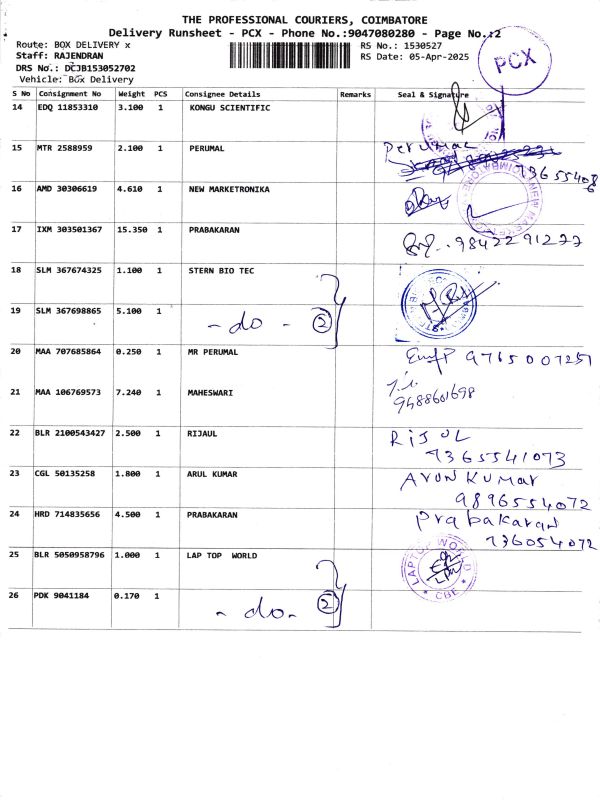 THE PROFESSIONAL COURIERS, COIMBATORE
Delivery Runsheet - PCX - Phone No.:9047080280 - Page No.:2
Route: BOX DELIVERY x
RS No.: 1530527
Staff: RAJENDRAN
RS Date: 05-Apr-2025
DRS No.: DCJB153052702
Vehicle: Box Delivery
PCX
S No Consignment No Weight PCS Consignee Details Remarks Seal & Signature
14 EDQ 11853310 3.100 1 KONGU SCIENTIFIC
15 MTR 2588959 2.100 1 PERUMAL Perumal
16 AMD 30306619 4.610 1 NEW MARKETRONIKA
17 IXM 303501367 15.350 1 PRABAKARAN 9842291277
18 SLM 367674325 1.100 1 STERN BIO TEC
19 SLM 367698865 5.100 1 - do - 2
20 MAA 707685864 0.250 1 MR PERUMAL 9765007257
21 MAA 106769573 7.240 1 MAHESWARI 9488601698
22 BLR 2100543427 2.500 1 RIJAUL RIJUL
7365541073
23 CGL 50135258 1.800 1 ARUL KUMAR ArUN KUMar
9896554072
24 HRD 714835656 4.500 1 PRABAKARAN Prabakaran
736054072
25 BLR 5050958796 1.000 1 LAP TOP WORLD LAPTOP WORLD CBE
26 PDK 9041184 0.170 1 - do - 2